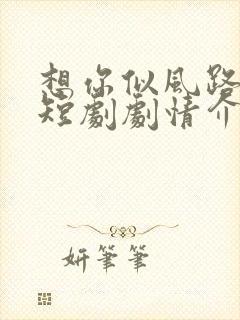 想你似風路
短劇劇情介
妍筆筆